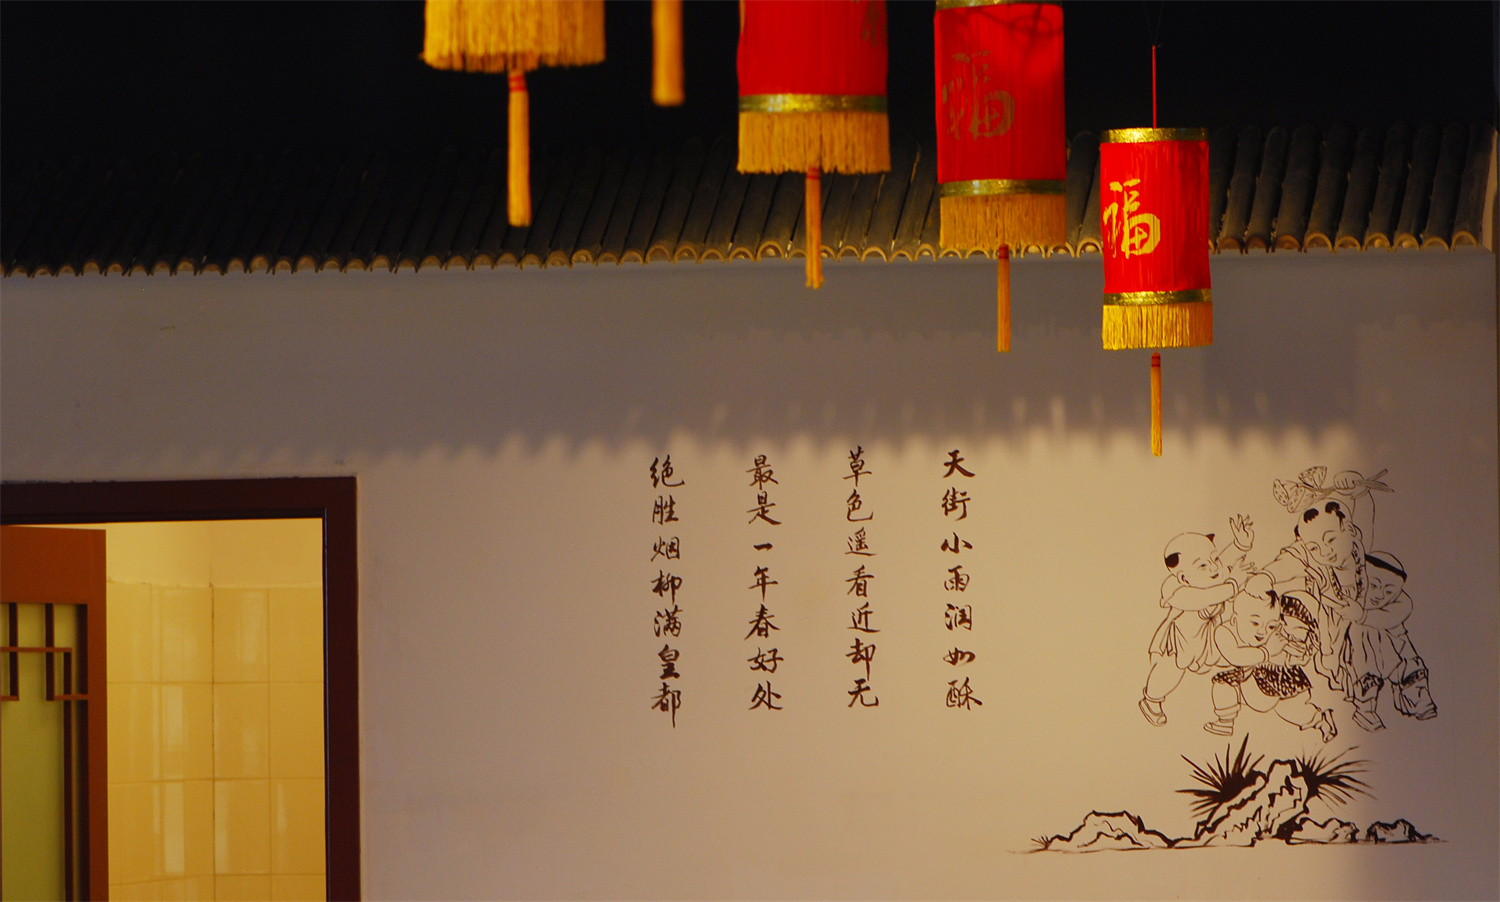 福
福
天街小雨润如酥
草色遥看近却无
最是一年春好处
绝胜烟柳满皇都